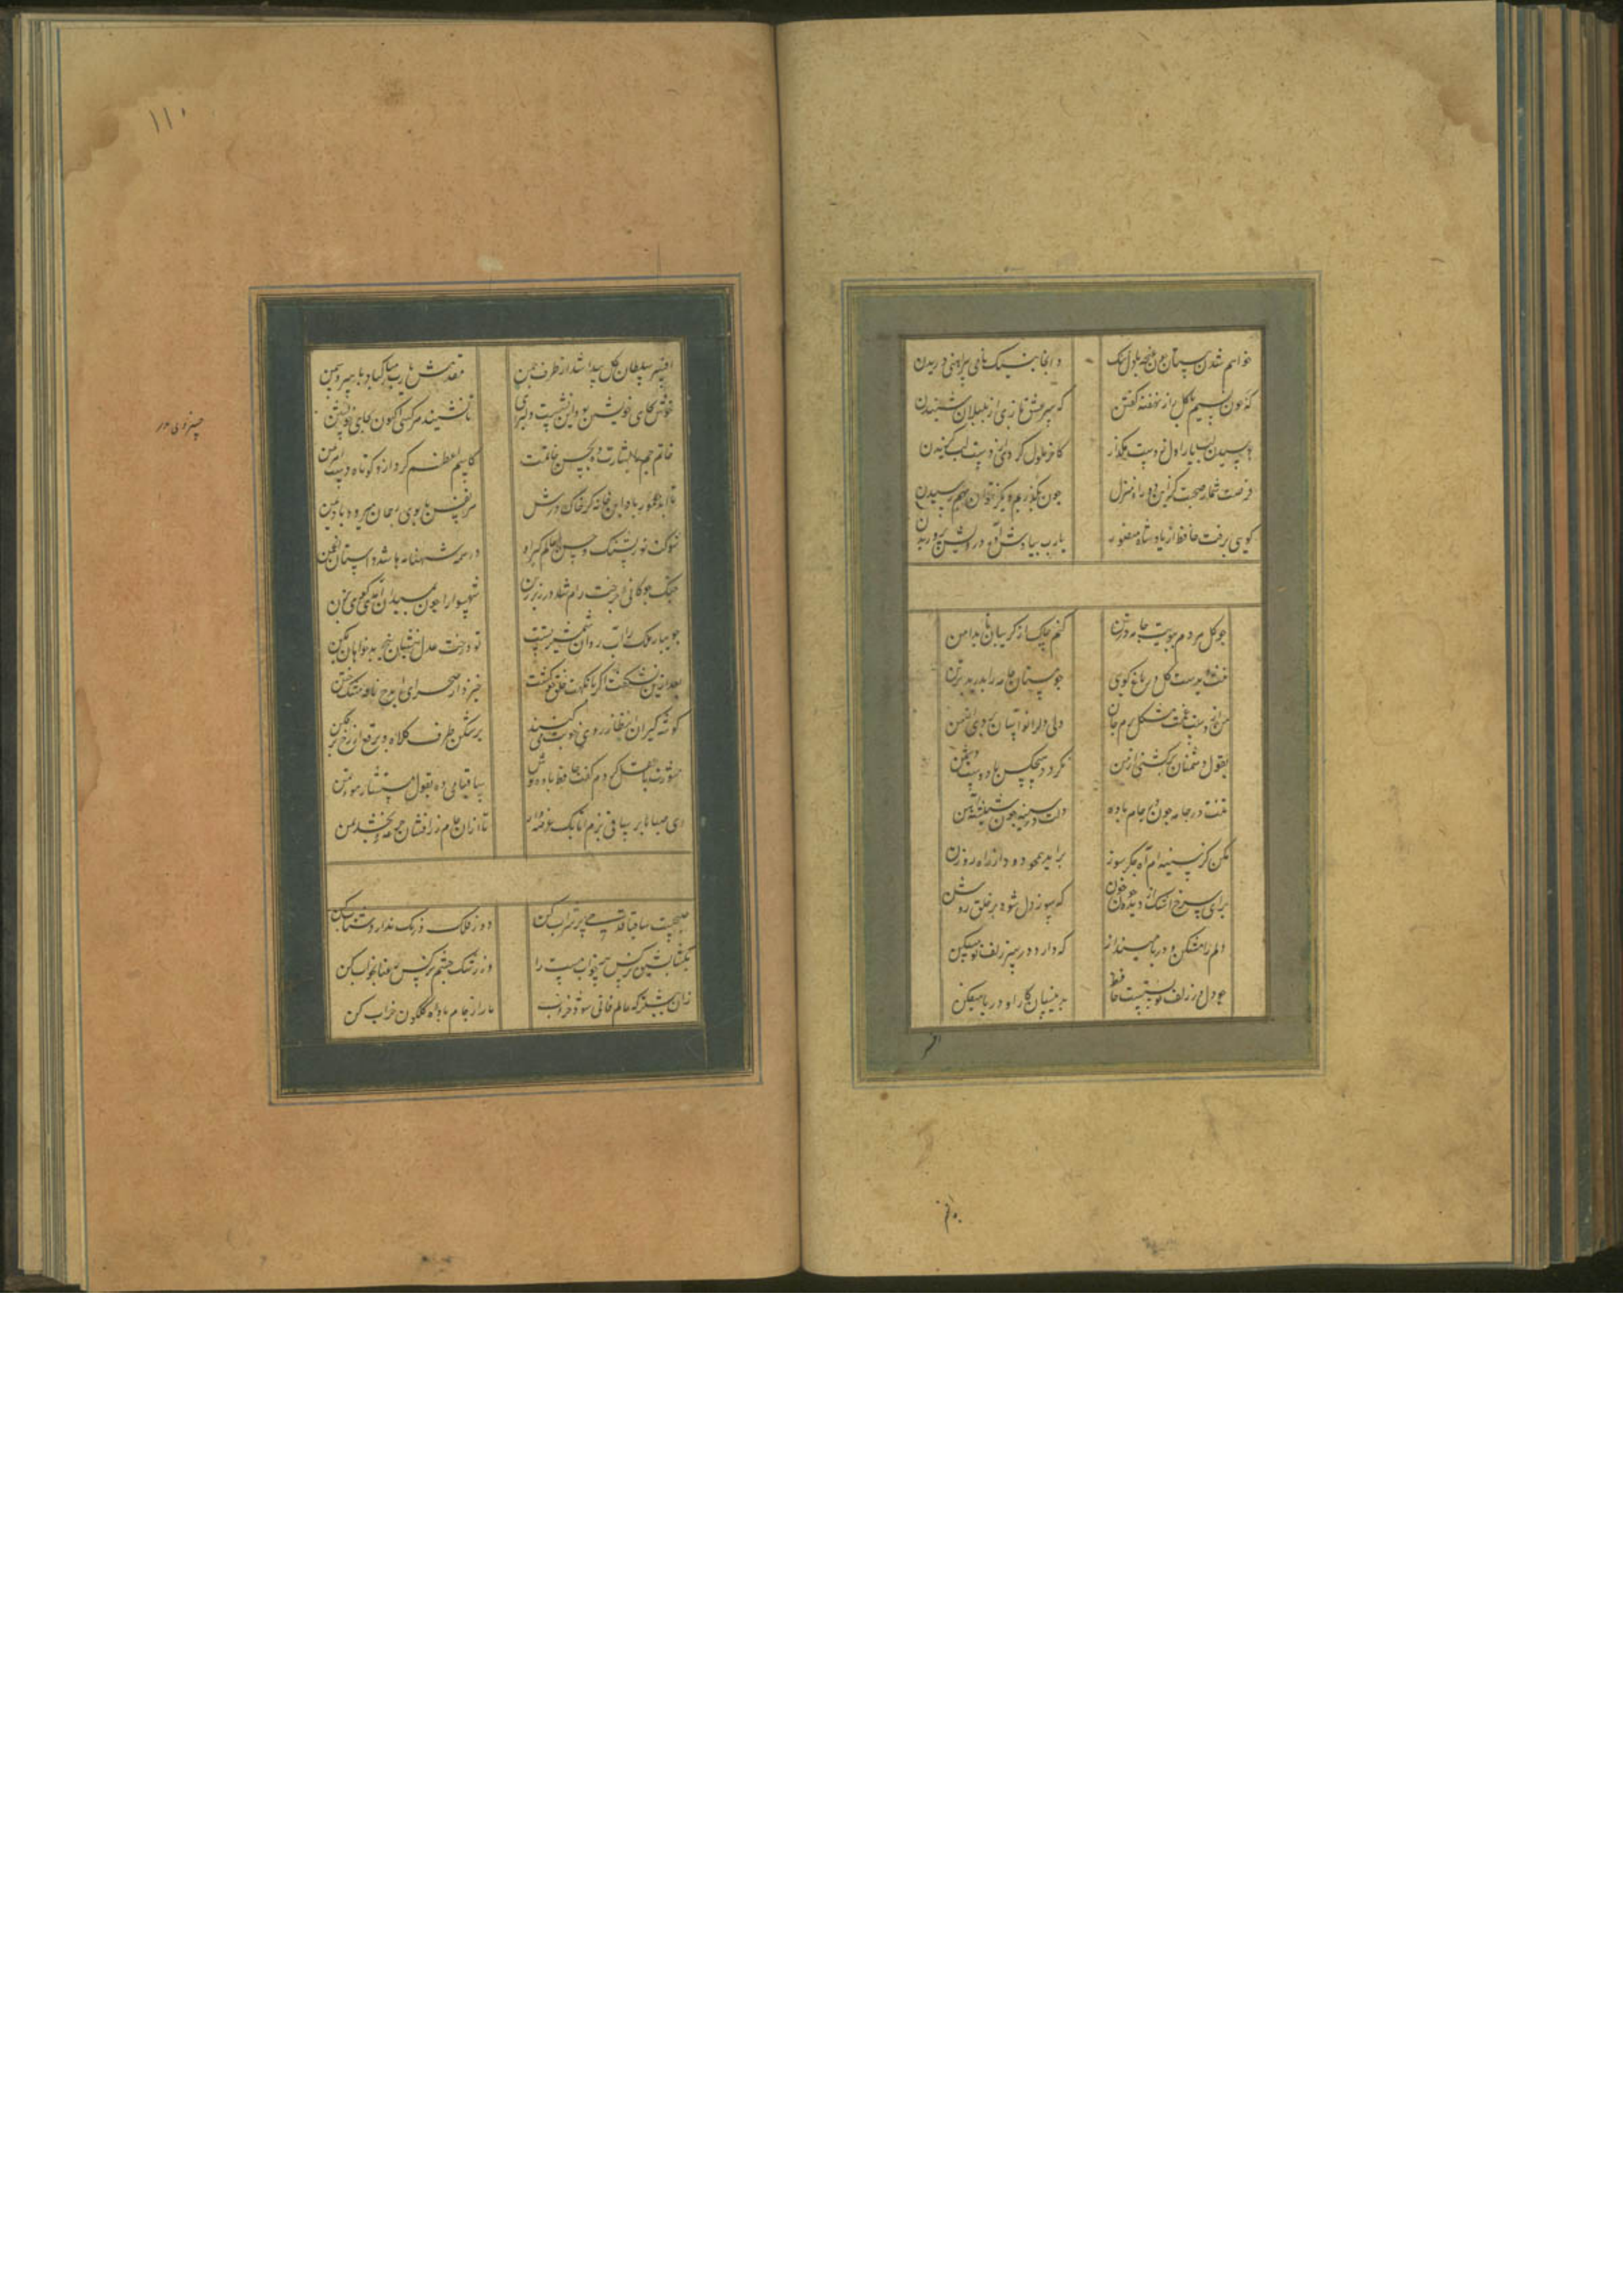 خواهم شدن ببستان چون غنچه با دل تنک وانجا بنیک نامی پیراهنی دریدن
که چون نسیم با کل راز نهفته کفتن که سر عشق بازی از بلبلان شنیدن
بوسیدن لب یار اول ز دست مکذار کاخر ملول کردی از دست لب کزیدن
فرصت شمار صحبت کزین دو راه منزل چون بکذریم دیکر نتوان بهم رسیدن
کویی برفت حافظ از یاد شاه منصور یارب بیادش آور درویش پروریدن
چو کل هر دم ببویت جامه در تن کنم چاک از کریبان تا بدامن
کل در باغ کویی چو مستان جامه را بدرید بر تن
من از دست غمت مشکل برم جان ولی دل را تو آسان بردی از من
بقول دشمنان برکشتی از من نکردد هیچکس با دوست دشمن
تنت در جامه چون در جام باده دلت در سینه چون
مکن کز سینه ام آه جکر سوز برآید همچو دود از راه روزن
اشک از دیده چون خون که سوز دل شود بر خلق روشن
دلم را مشکن و در پا مینداز که دارد در سر زلف تو مسکن
چو دل در زلف تو بستست حافظ بدینسان کار او در پا میفکن
افسر
۱۱۰
افسر سلطان کل پیدا شد از طرف چمن مقدمش یارب مبارک باد بر سرو و سمن
خوش بجای خویشتن بود این نشست خسروی تا نشیند هر کسی اکنون بجای خویشتن
خاتم جم را بشارت ده بحسن خاتمت کاسم اعظم کرد ازو کوتاه دست اهرمن
تا ابد معمور باد این خانه کز خاک درش هر نفس با بوی رحمان میوزد باد یمن
شوکت پور پشنک و حسن عالمکیر او در همه شهنامه ها شد داستان انجمن
خنک چوکانی چرخت رام شد در زیر زین شهسوارا چون بمیدان آمدی کویی بزن
جویبار ملک را آب روان شمشیر تست تو درخت عدل بنشان بیخ بدخواهان بکن
بعد ازین نشکفت اکر با نکهت خلق خوشت خیزد از صحرای ایذج نافه مشک ختن
کوشه کیران انتظار روی خوبت میکنند برشکن طرف کلاه و برقع از رخ برفکن
مشورت با عقل کردم کفت حافظ باده نوش ساقیا می ده بقول مستشار مؤتمن
ای صبا بر ساقی بزم اتابک عرضه دار تا از آن جام زرافشان جرعه بخشد بمن
صبحست ساقیا قدحی پر شراب کن دور فلک درنک ندارد شتاب کن
بکشا بشیوه نرکس پرخواب مست را وز رشک چشم نرکس رعنا بخواب کن
زان پیشتر که عالم فانی شود خراب ما را ز جام باده کلکون خراب کن